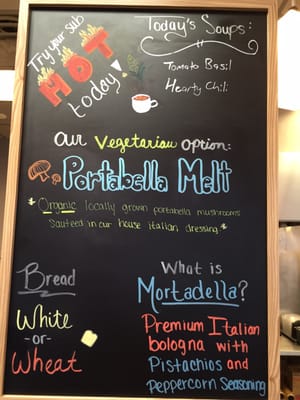 Try your sub
HOT
today!
Today's Soups:
Tomato Basil
Hearty Chili
Our Vegetarian option:
Portabella Melt
*Organic locally grown portabella mushrooms
Sauteed in our house italian dressing*
Bread
White
-or-
Wheat
What is
Mortadella?
Premium Italian
bologna with
Pistachios and
Peppercorn Seasoning